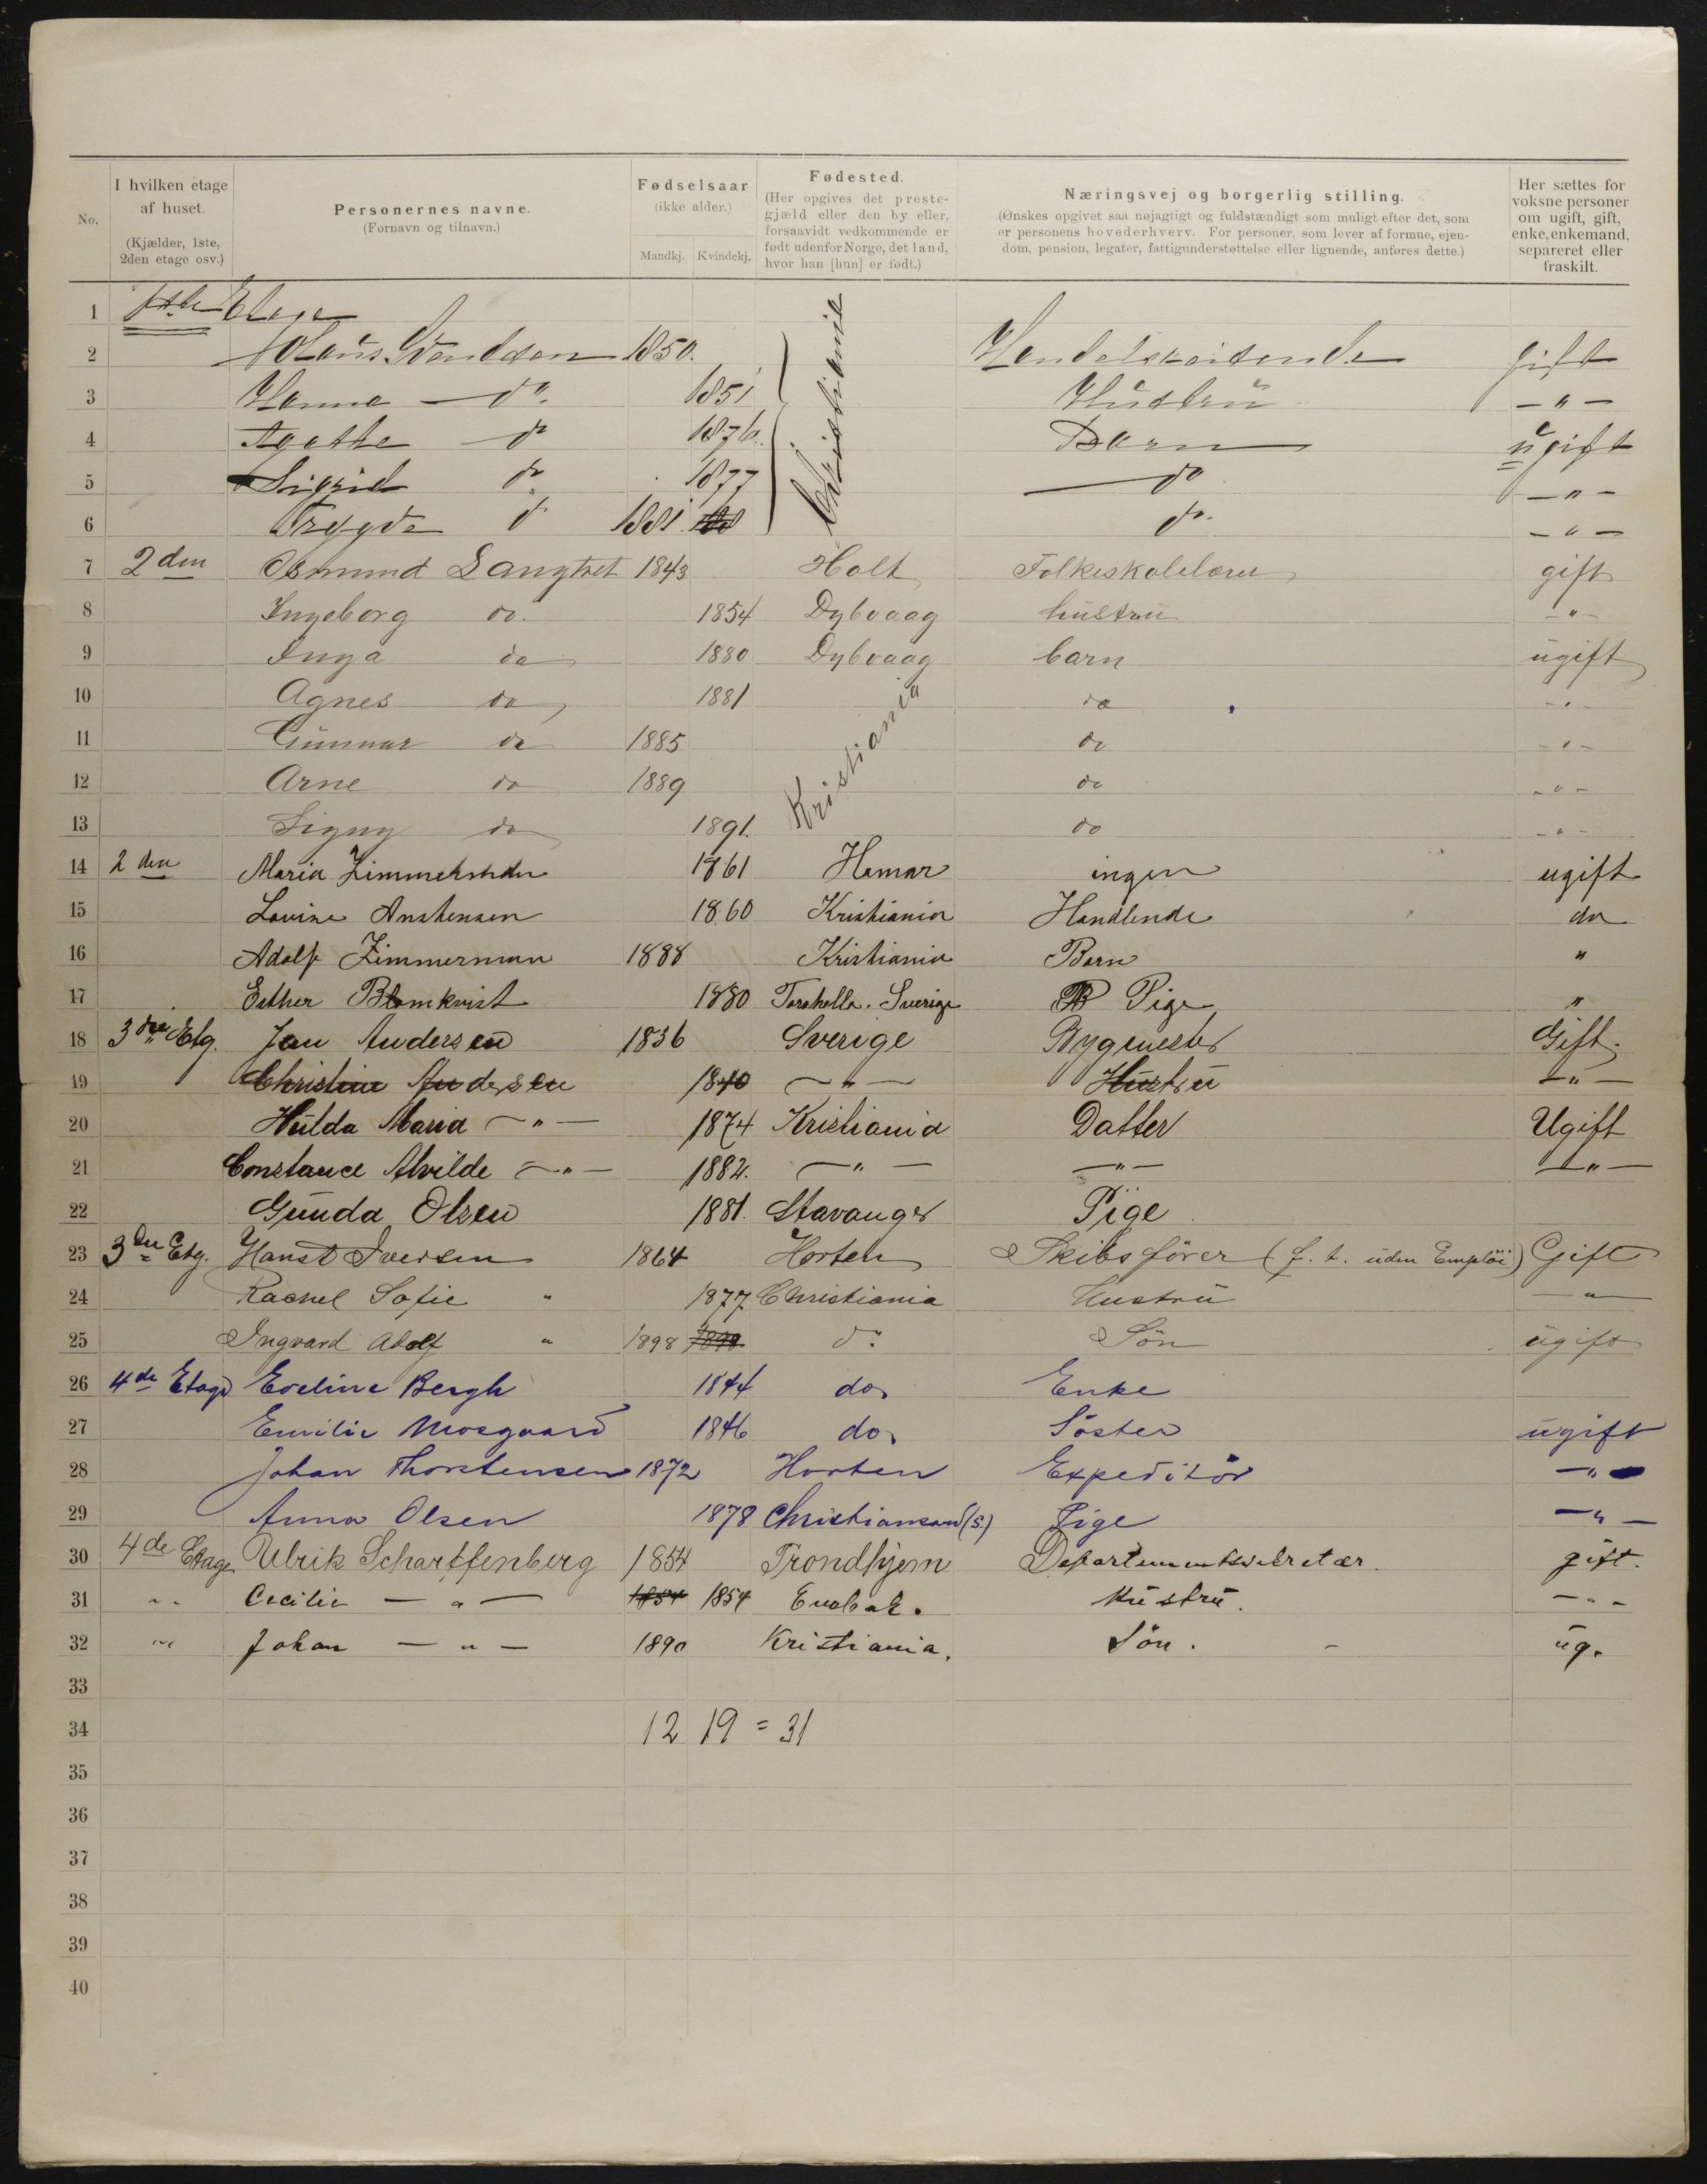 No.
I hvilken etage
af huset.
(Kjælder, 1ste,
2den etage osv.)
Personernes navne.
(Fornavn og tilnavn.)
Fødselsaar
(ikke alder.)
Mandkj. Kvindekj.
Fødested.
(Her opgives det preste-
gjæld eller den by eller,
forsaavidt vedkommende er
født udenfor Norge, det land,
hvor han [hun] er født.)
Næringsvej og borgerlig stilling.
(Ønskes opgivet saa nøjagtigt og fuldstændigt som muligt efter det, som
er personens hovederhverv. For personer, som lever af formue, ejen-
dom, pension, legater, fattigunderstøttelse eller lignende, anføres dette.)
Her sættes for
voksne personer
om ugift, gift,
enke, enkemand,
separeret eller
fraskilt.
1 1ste Etage
2 1850. Christiania Handelsreisende gift
3 Hanna — do. 1851 Hustru — " —
4 Agathe do 1876. Barn ugift
5 Sigrid do 1877 do — " —
6 Trygve do 1881 do. — " —
7 2den Osmund Langtvet 1843 Holt Folkeskolelærer gift
8 Ingeborg do. 1854 Dybvaag hustru — " —
9 Inga do 1880 Dybvaag barn ugift
10 Agnes do 1881 Kristiania do — " —
11 Gunnar do 1885 do — " —
12 Arne do 1889 do — " —
13 Signy do 1891. do — " —
14 2den Maria 1861 Hamar ingen ugift
15 Lovise Anstensen 1860 Kristiania Handlende do
16 Adolf Zimmerman 1888 Kristiania Barn "
17 Esther Blomkvist 1880 Sverige Pige "
18 3die Etg. Jan Andersen 1836 Sverige Bygmester Gift.
19 Christine Andersen 1840 — " — Hustru — " —
20 Hulda Maria — " — 1874 Kristiania Datter Ugift
21 Constance Alvilde — " — 1882. — " — — " — — " —
22 Gunda Olsen 1881. Stavanger Pige
23 3die Etg. Hans Iversen 1864 Horten Skibsfører (f. t. uden Emploi) Gift
24 Rachel Sofie " 1877 Christiania Hustru — " —
25 Ingvard Adolf " 1898 1898 do. Søn ugift
26 4de Etage Eveline Bergh 1844 do. Enke
27 Emilie Mosgaard 1846 do. Søster ugift
28 Johan Thorstensen 1872 Horten Expeditør — " —
29 Anna Olsen 1878 Christiansand (S.) Pige — " —
30 4de Etage Ulrik Scharffenberg 1854 Trondhjem Departementssekretær. gift.
31 " Cecilie — " — 1854 1854 Enebak. Hustru. — " —
32 " Johan — " — 1890 Kristiania. Søn. ug.
33
34 12 19 = 31
35
36
37
38
39
40